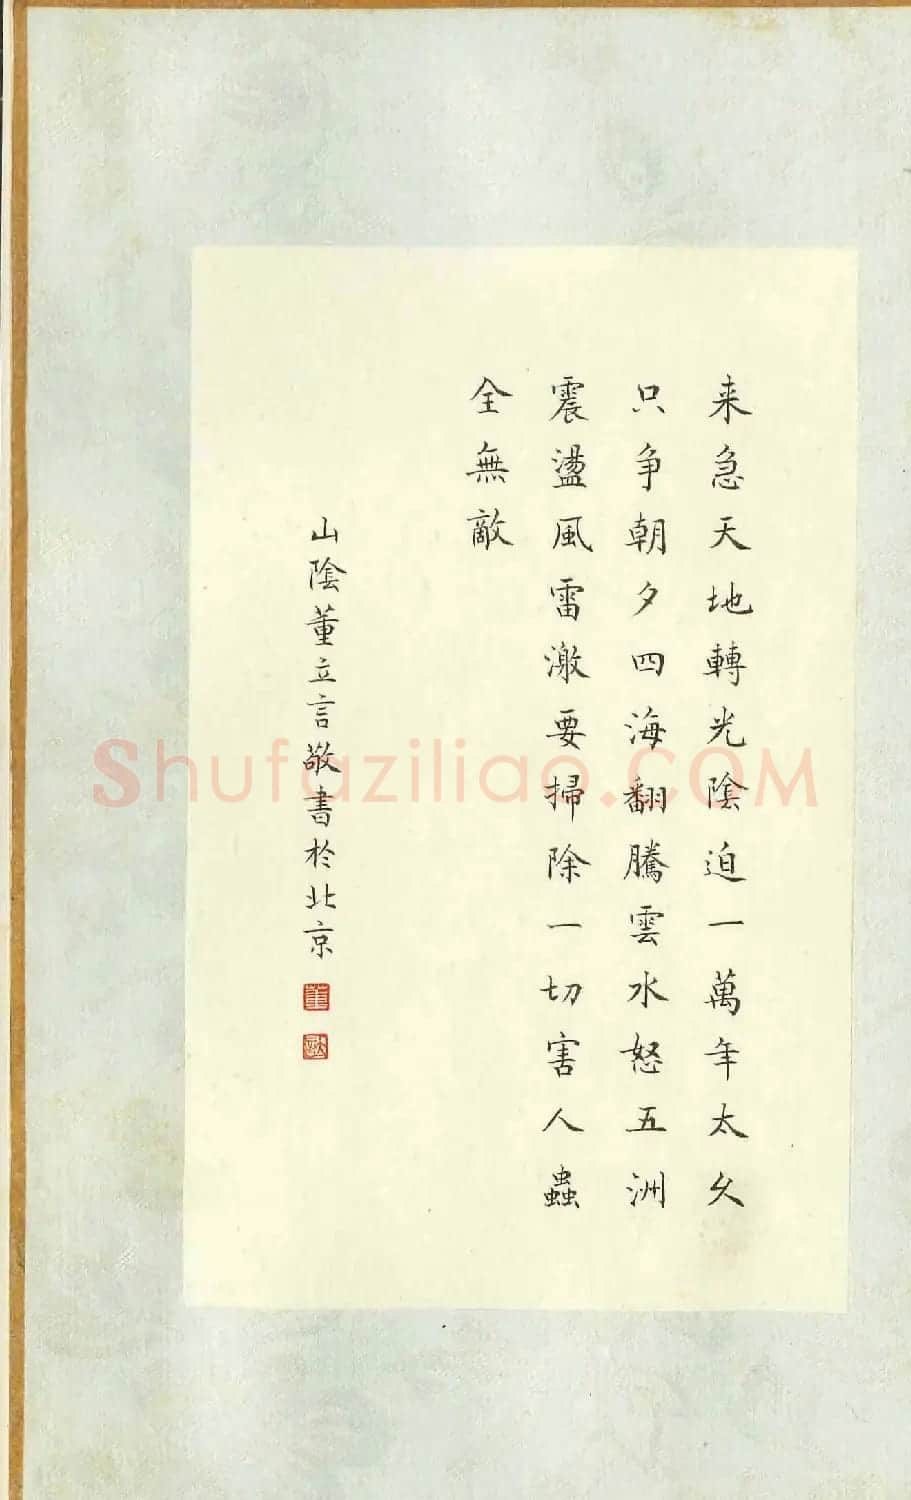 来急天地轉光陰迫一萬年太久
只争朝夕四海翻騰雲水怒五洲
震盪風雷激要掃除一切害人蟲
全無敵
山陰董立言敬書於北京
董
Shufaziliao.COM